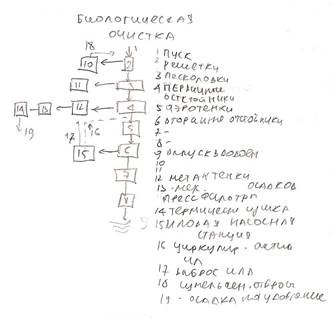 БИОЛОГИЧЕСКАЯ
ОЧИСТКА
1 ПУСК
2 РЕШЕТКИ
3 ПЕСКОЛОВКИ
4 ПЕРВИЧНЫЕ
ОТСТОЙНИКИ
5 АЭРОТЕНКИ
6 ВТОРИЧНЫЕ ОТСТОЙНИКИ
7 -
8 -
9 ВЫПУСК В ВОДОЕМ
10
11
12 МЕТАНТЕНКИ
13 - МЕХ. ОСАДКОВ
ПРЕССФИЛЬТРЫ
14 ТЕРМИЧЕСК СУШКА
15 ИЛОВАЯ НАСОСНАЯ
СТАНЦИЯ
16 ЦИРКУЛИР. АКТИВ
ИЛ
17 ВЫБРОС ИЛА
18
19 - ОСАДКА НА УДОБРЕНИЕ
18
1
10
2
11
3
14
13
12
4
19
17
16
5
15
6
7
8
9